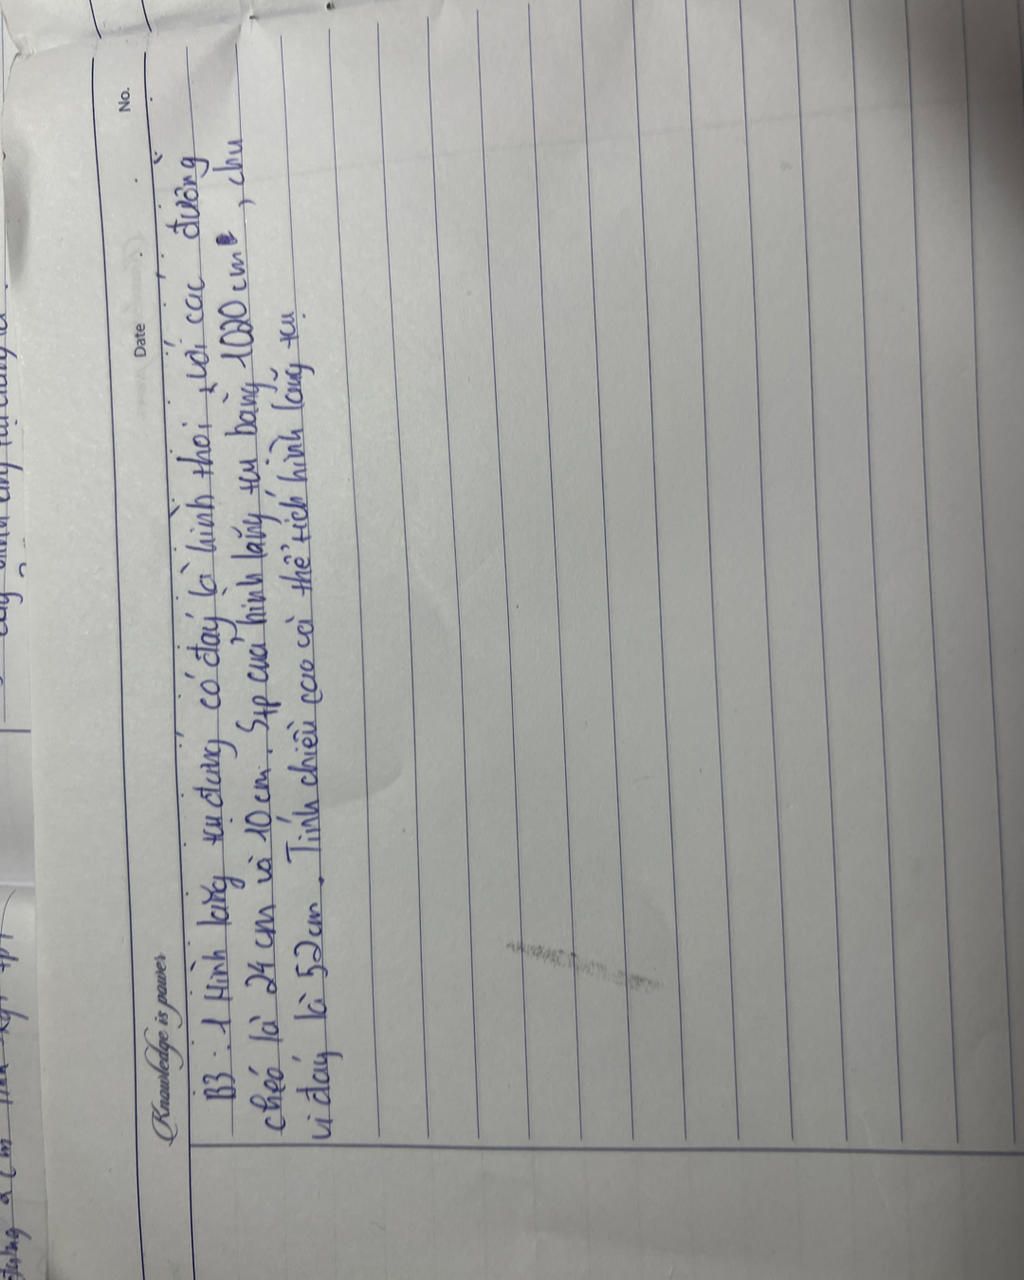 No.
Date
Knowledge is power
B3: 1 Hình lăng trụ đứng có đáy là hình thoi, với các đường
chéo là 24 cm và 10 cm. Stp của hình lăng trụ bằng 1020 cm², chu
vi đáy là 52 cm. Tính chiều cao và thể tích hình lăng trụ.